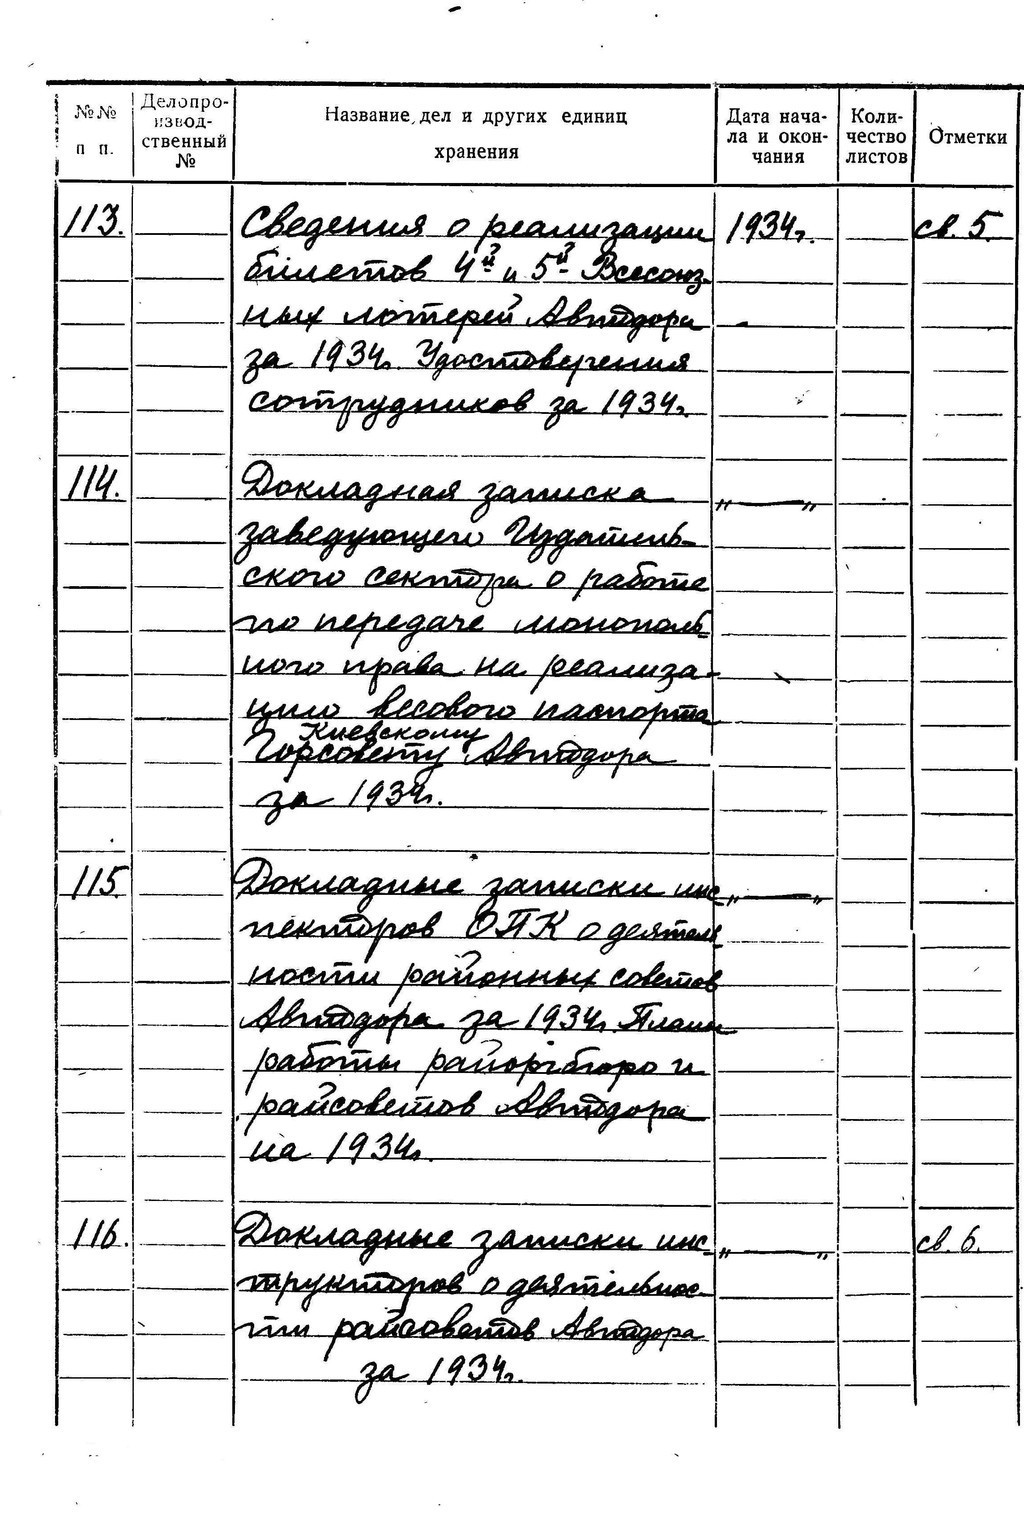 №№ п п. Делопроизводственный № Название дел и других единиц хранения Дата начала и окончания Количество листов Отметки
113. Сведения о реализации 1934г. св. 5.
билетов 4й и 5й Всесоюз-
ных лотерей Автодора
за 1934г. Удостоверения
сотрудников за 1934г.
114. Докладная записка „——„
заведующего Издатель-
ского сектора о работе
по передаче монополь-
ного права на реализа-
цию весового паспорта
Киевскому
Горсовету Автодора
за 1934г.
115. Докладные записки инс „——„
пекторов ОПК о деятель
ности районных советов
Автодора за 1934г. Планы
работы райоргбюро и
райсоветов Автодора
на 1934г.
116. Докладные записки инс- „——„ св. 6.
трукторов о деятельнос-
ти райсоветов Автодора
за 1934г.